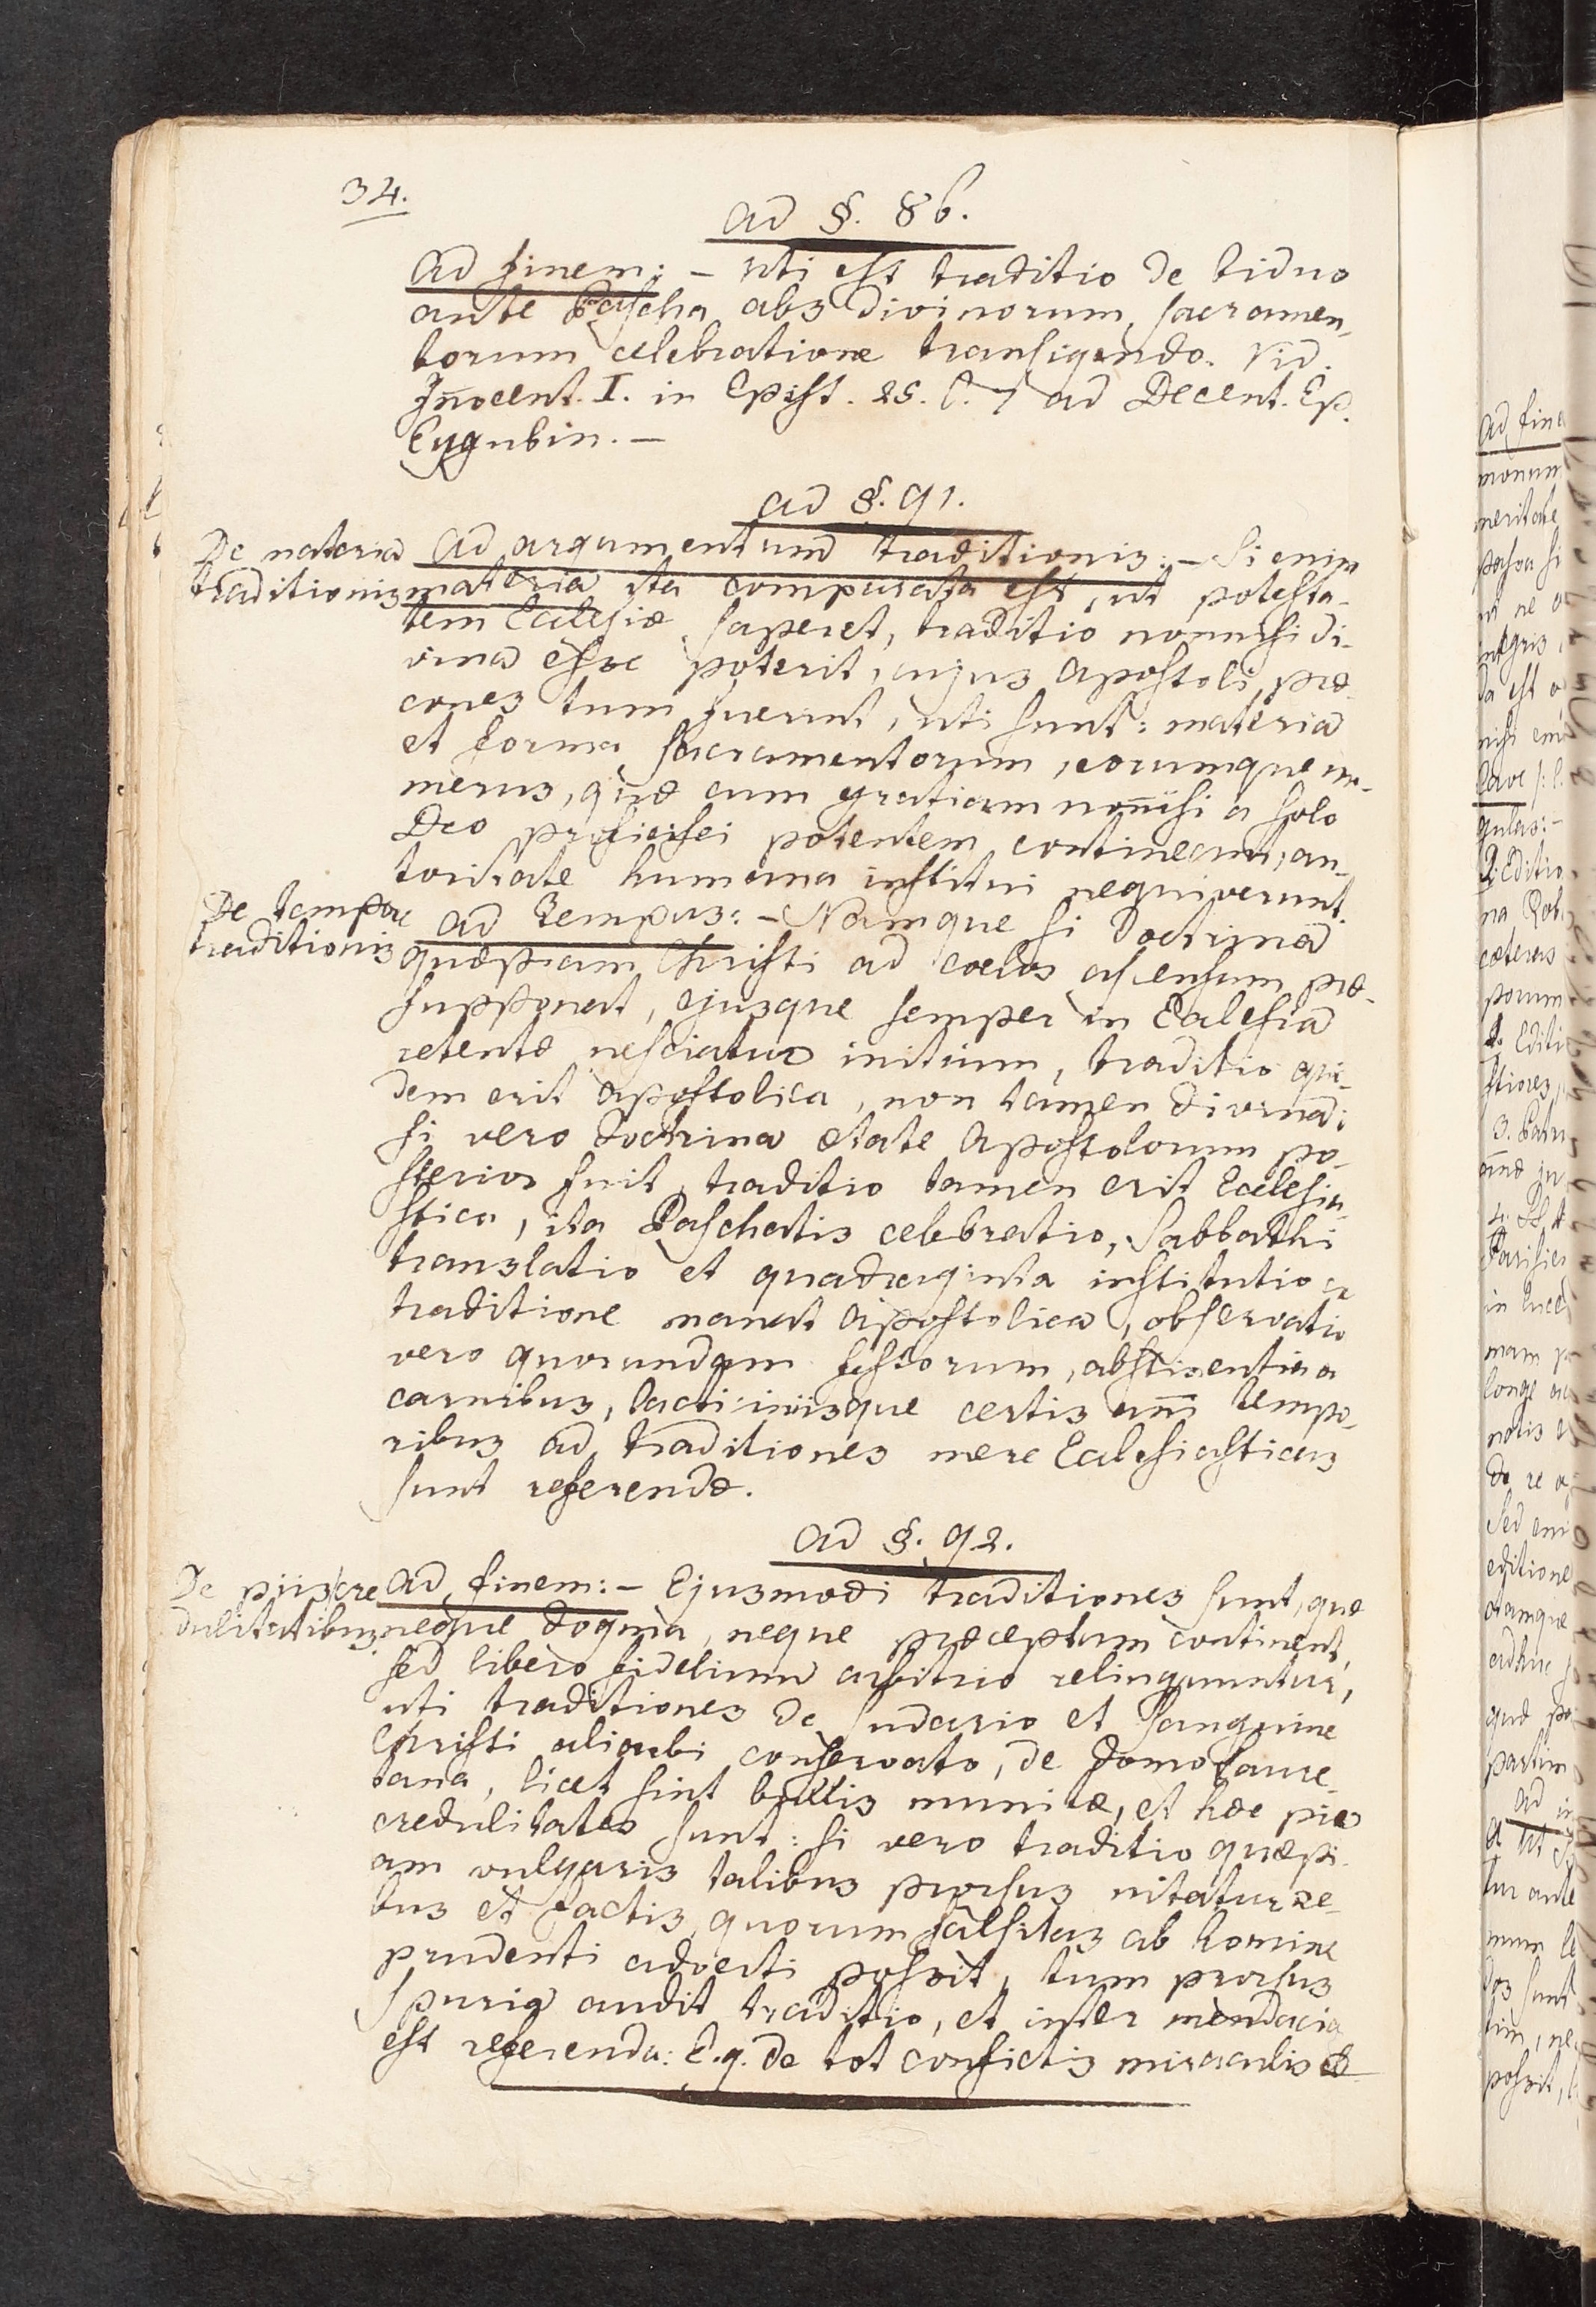 34.
ad §. 86.
ad finem: – uti est traditio de biduo
ante Pascha abs divinorum sacramen-
torum celebratione transigendo. Vid.
Innocent. I. in Epist. 25. C. 7 ad Decent. Ep.
Eugubin. –
ad §. 91.
De materia
traditionis
ad argumentum traditionis: – Si enim
materia ita comparata est, ut potesta-
tem Ecclesiæ saperet, traditio nonnisi di-
vina esse poterit, cujus Apostoli præ-
cones tum fuerunt, uti sunt: materia
et forma sacramentorum, eorumque nu-
merus, quæ cum gratiam nonnisi a solo
Deo proficisci potentem contineant, au-
toritate humana institui nequiverunt.
De tempore
traditionis
ad tempus: – Namque si Doctrina
quæpiam Christi ad coelos ascensum præ-
supponat, ejusque semper in Ecclesia
retentæ nesciatur initium, traditio qui-
dem erit Apostolica, non tamen divina:
si vero doctrina ætate Apostolorum po-
sterior fuit, traditio tamen erit Ecclesia-
stica, ita Paschatis celebratio, Sabbathi
translatio et quadraginta institutio ex
traditione manat Apostolica, observatio
vero quorundam festorum, abstinentia a
carnibus, lacticiniisque certis anni tempo-
ribus ad traditiones mere Ecclesiasticas
sunt referendæ.
ad §. 92.
De piis cre
dulitatibus
ad finem: – Ejusmodi traditiones sunt, quæ
neque dogma, neque præceptum continent,
sed libero fidelium arbitrio relinquuntur,
uti traditiones de sudario et sanguine
Christi aliorubi conservato, de domo Laure-
tana, licet sint bullis munitæ, et hæ piæ
credulitates sunt: si vero traditio quæpi-
am vulgaris talibus prorsus nitatur re-
bus et factis, quorum falsitas ab homine
prudenti adverti possit, tum prorsus
spuria audit traditio, et inter mendacia
est referenda: E.g. de tot confictis miraculis et